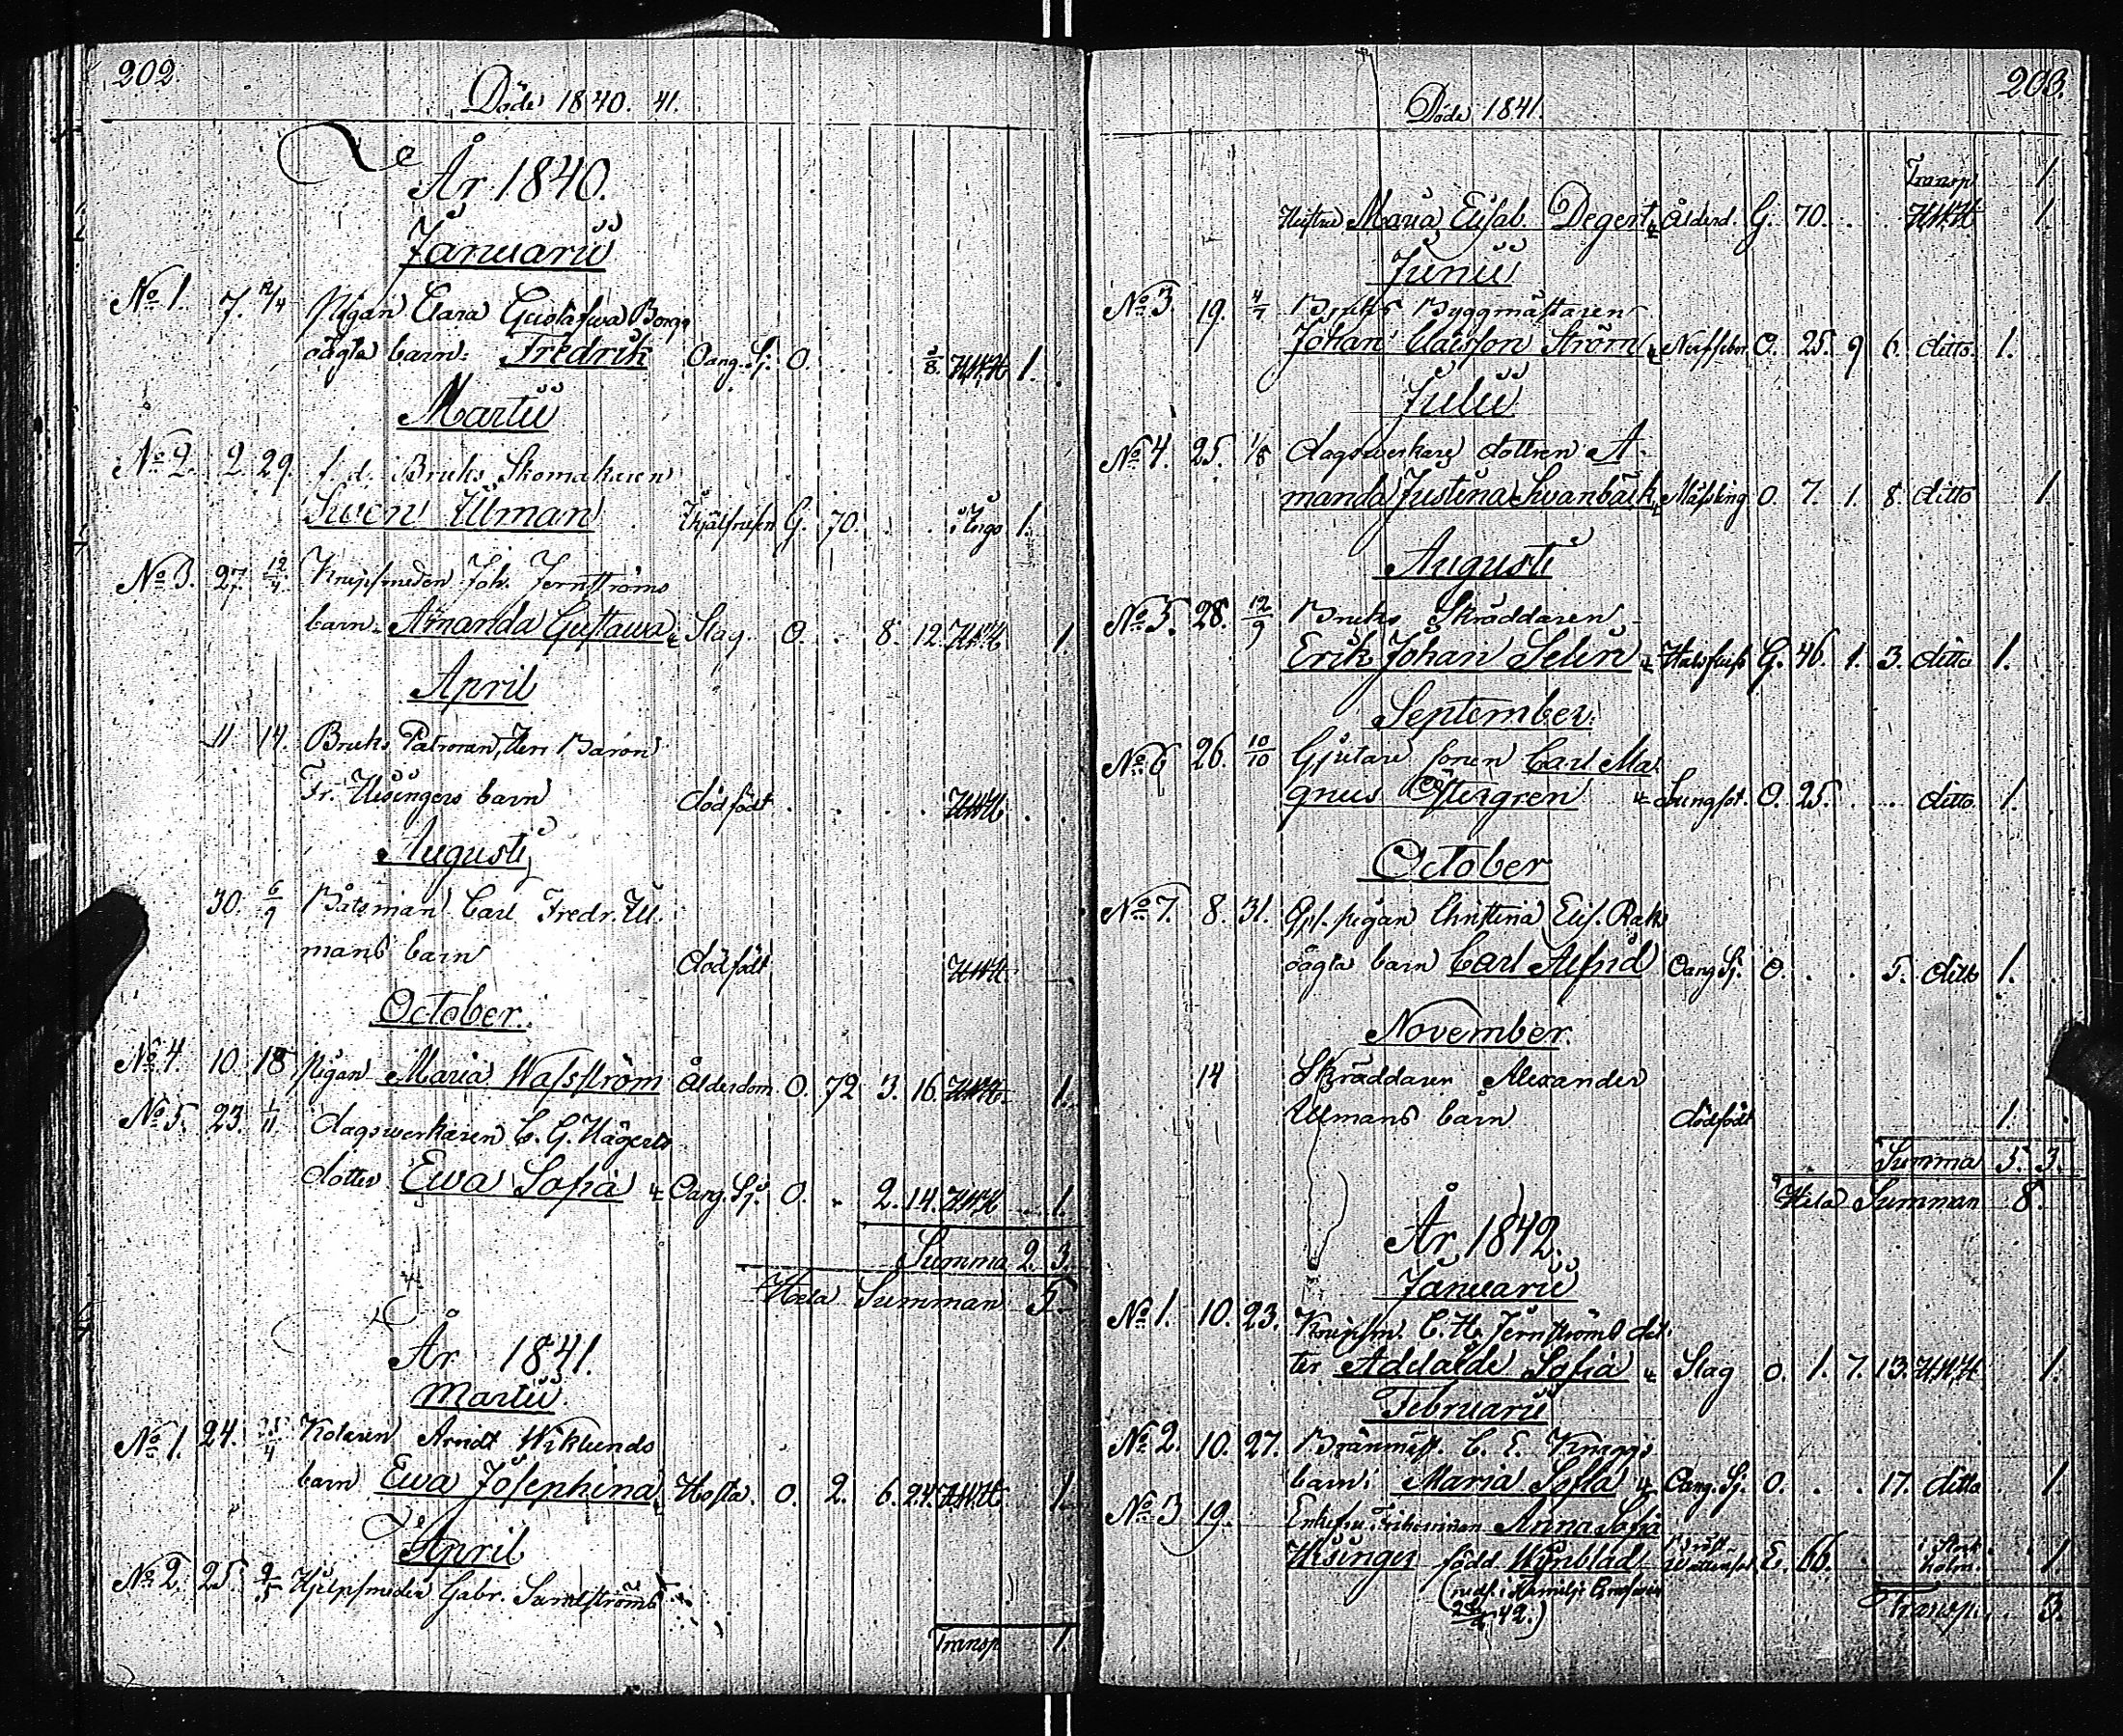 202.
Döde 1840. 41.
År 1840.
Januarii
No 1. 7. Pigan Clara Gustafwa Borgs
oägta barn: Fredrik Oang. Sj. O. HWH 1.
Martii
No 2. 2 29. f. d. Bruks Skomakaren
Swen Ulman G. 70. 1.
No 3. 27. 12/4. Knipsmeden Joh. Jernströms
barn Amanda Gustawa Slag. O. 8. 12. HWH 1.
April
11 14. Bruks Patronen, Herr Baron
Fr. Uisingers barn dödfödt HWH
Augusti
30. 6/9 Båtsman Carl Fredr. Ul-
mans barn dödfödt HWH
October.
No 4. 10. 18 Pigan Maria Wassström Ålderdom O. 72 3. 16. HWH 1.
No 5. 23. 1/11. dagswerkaren C. G. Hägerts
dotter Ewa Sofia Oang. Sj. O. 2. 14. HWH 1.
Summa 2. 3.
Hela Summan 5.
År 1841.
Martii
No 1. 24. Kolaren Arvidt Wiklunds
barn Ewa Josephina Hosta. O. 2. 6. 24. HWH 1.
April
No 2. 25. 2/5 Hjelpsmeden Gabr. Sundströms
Transp 1.
203.
Döde 1841.
Transp 1.
Hustru Maria Elisab. Degert Ålderd. G. 70. HWH 1.
Junii
No 3. 19. 4/7 Bruks Byggmästaren
Johan Claesson Ström O. 25. 9 6. ditto. 1.
Julii
No 4. 25. 1/8 dagswerkare dottren A-
manda Justina Svanbäck Mässling O. 7. 1. 8. ditto 1.
Augusti
No 5. 28. 12/9 Bruks Skräddaren
Erik Johan Selin G. 46. 1. 3. ditto 1.
September.
No 6 26. 10/10 Gjutare sonen Carl Ma-
gnus Östergren Lungsot. O. 25. ditto. 1.
October
No 7. 8. 31. pigan Christina Elis.
oägta barn Carl Alfrid Oang Sj. O. 5. ditto 1.
November.
14 Skräddaren Alexander
Ulmans barn dödfödt 1.
Summa 5. 3.
Hela Summan 8.
År 1842.
Januarii
No 1. 10. 23. Knipsm. C. H. Jernströms dot-
ter Adelaide Sofia Slag O. 1. 7. 13. HWH 1.
Februarii
No 2. 10. 27. Brännmäst. C. E.
barn: Maria Sofia Oang. Sj. O. 17. ditto 1.
No 3 19. Enkefru Friherrinnan Anna Sofia
Uisinger född Wynblad Bröst-
wattensot. E. 66. i Stock-
holm. 1
42.)
Transp. 3.